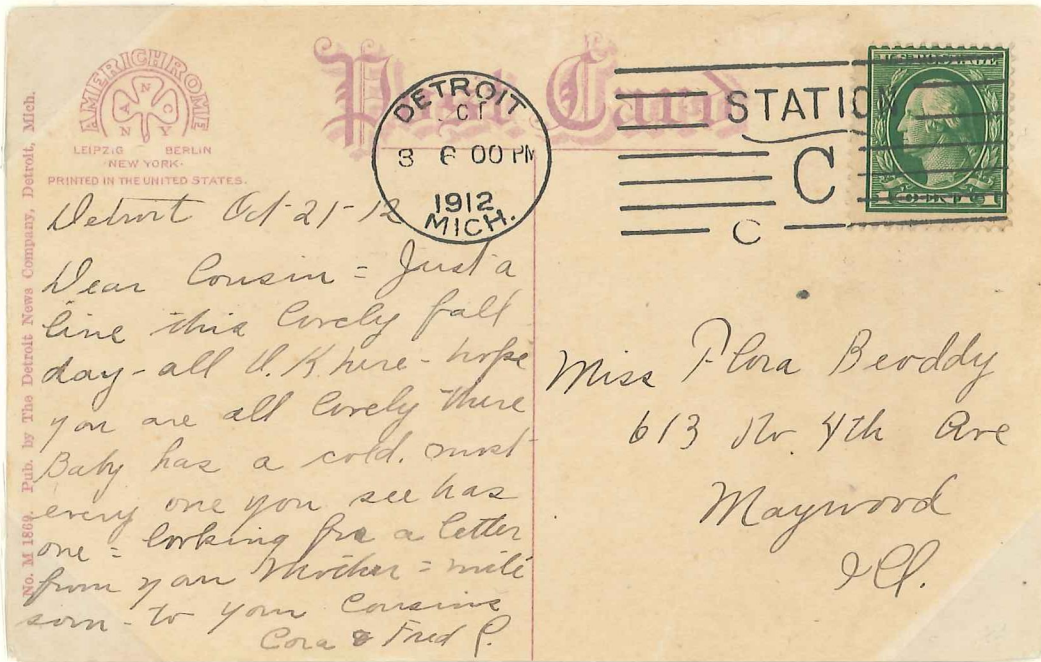 AMERICHROME
A N C
N Y
LEIPZIG BERLIN
·NEW YORK·
PRINTED IN THE UNITED STATES.
No. M 1869. Pub. by The Detroit News Company, Detroit, Mich.
Post Card
DETROIT
OCT
6 00 PM
1912
MICH.
STATION
C
C
Detroit Oct-21-12
Dear Cousin = Just a
line this lovely fall
day - all O.K here - hope
you are all lovely there
Baby has a cold. most
every one you see has
one = looking for a letter
from your Mother = write
soon - to your Cousins
Cora & Fred P.
Miss Flora Beoddy
613 No. 4th Ave
Maywood
Ill.